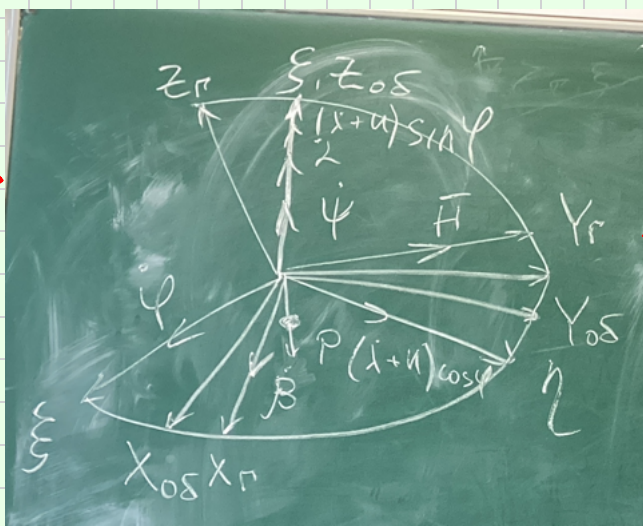 Zг ζ, Zоб
(λ̇+u) sin φ
α̇
ψ̇
H̄ Yг
φ̇
Yоб
P (λ̇+u)cosφ
β̇ η
ξ
Xоб Xг